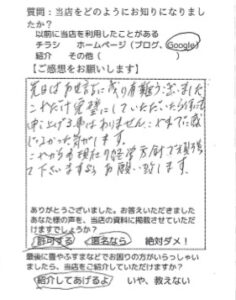 質問：当店をどのようにお知りになりましたか？
以前に当店を利用したことがある
チラシ　ホームページ（ブログ、Google）
紹介　その他（　　　）
【ご感想をお願いします】
先日はお世話になり有難うございました
これだけ完璧にしていただいたら
申し上げる事はありません。
じよかった気がします。
これからも現在の経営方針で頑張って
下さいますようお願い致します。
ありがとうございました。お答えいただきました
あなた様の声を、当店の資料に掲載させていただ
けますでしょうか？
許可する　匿名なら　絶対ダメ！
最後に畳やふすまなどでお困りの方がいらっしゃい
ましたら、当店をご紹介していただけますか？
紹介してあげるよ　いや、教えない